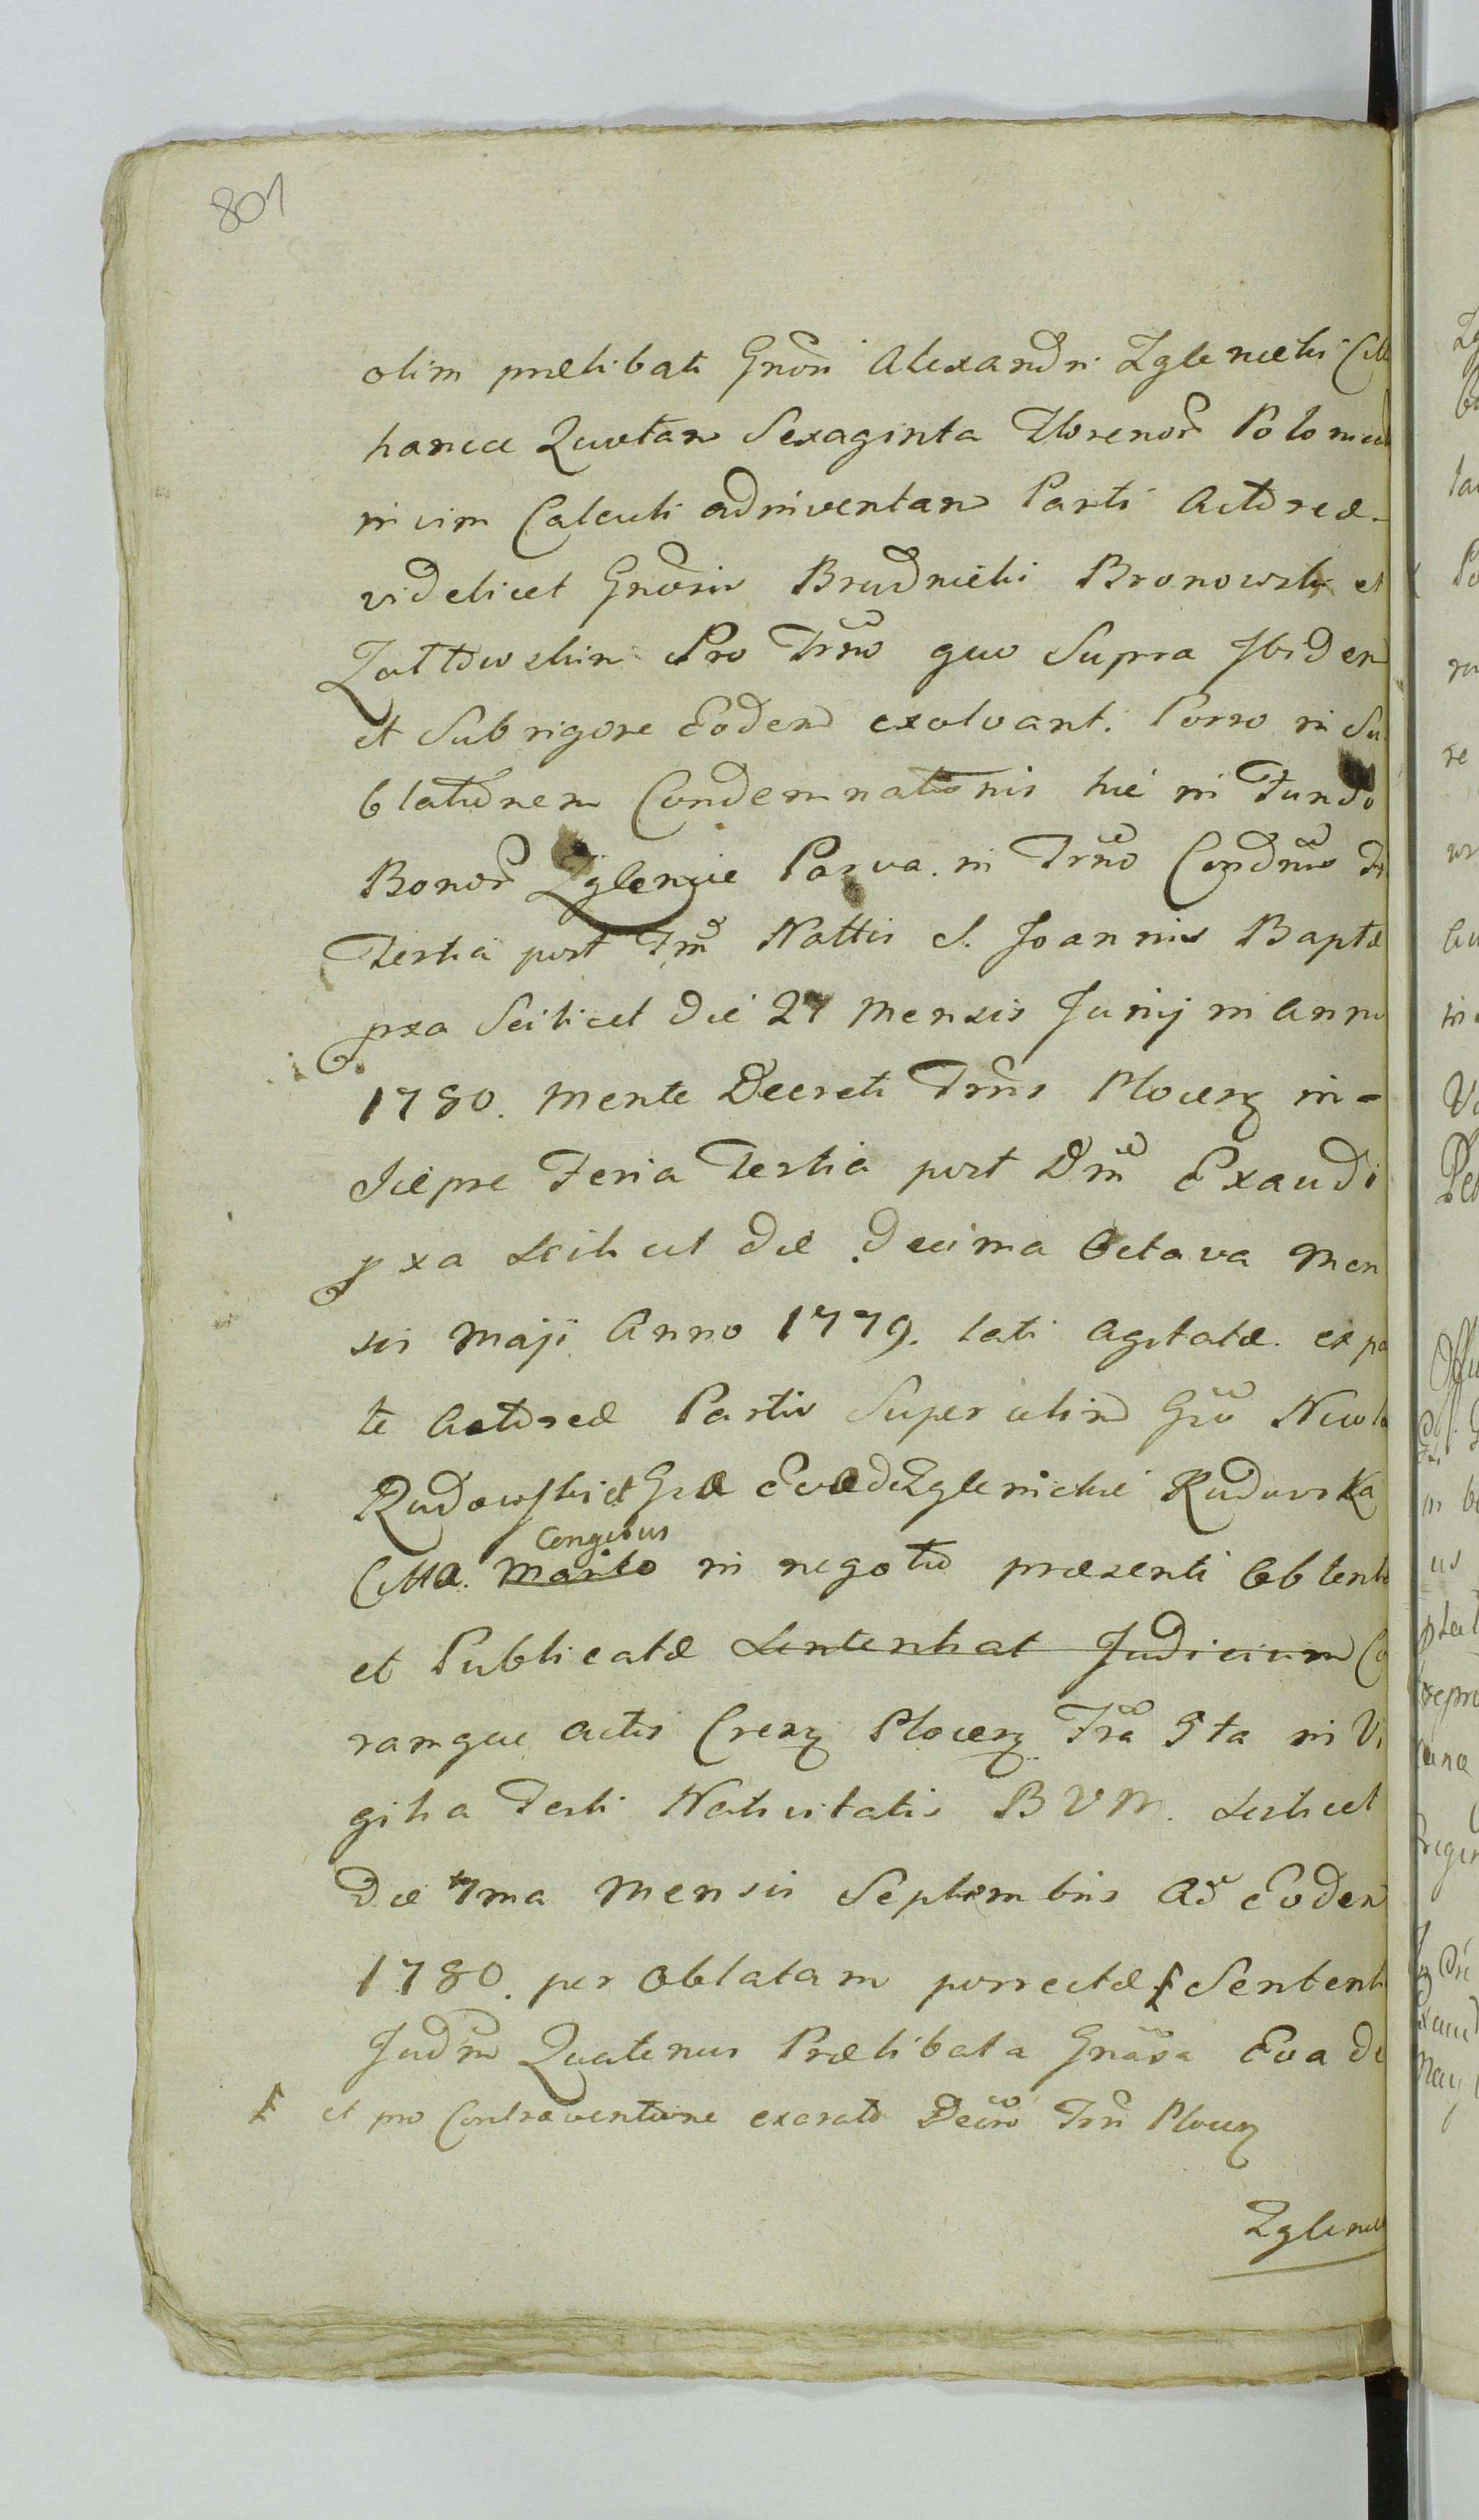 801
olim prælibati Gnõsi Alexandri Zglenicki Citt
hancce Quotam Sexaginta Florenor̃ Polonical
in vim Calculi adinventam Parti Actoreæ
videlicet Gnõsis Brudnicki Bronowski et
Zołtowskin Pro Trno quo Supra Ibidem
et Sub rigore Eodem exolvant. Porro in Su
blationem Condemnationis hic in Fundo
Bonor̃ Zglenice Parva in Trno Condnis Fr
Tertia post Fm̃ Nattis S. Joannis Baptæ
pxa Scilicet die 27 Mensis Junij in Anno
1780. mente Decreti Trnis Plocen in-
scie pre Feria Tertia post Dm̃ Exaudi
pxa Scilicet die decima Octava Men
sis Maji Anno 1779. lati agitatæ ex par
te Actoreæ Partis Super olim Gso Nicola
Rudowski et Gsæ Evæ de Zglenickie Rudowska
Citta. Marito Congibus in negotio præsenti Obtentæ
et Publicatæ Sententiat Judicium Co
ramque actis Cren Plocen Fra 5ta in Vi
gilia Festi Nativitatis BVM. Scilicet
Die 7ma Mensis Septembris Ao Eodem
1780. per Oblatam porrectæ Sententi
Judm Quatenus Prælibata Gnãsa Eva de
et pro Contraventione exarato Decro Trn Plocen
Zglenic